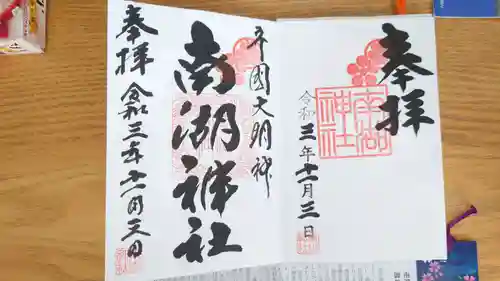 奉拝
南湖神社
令和三年十一月三日
楽国大明神
南湖神社
奉拝
令和三年十一月三日